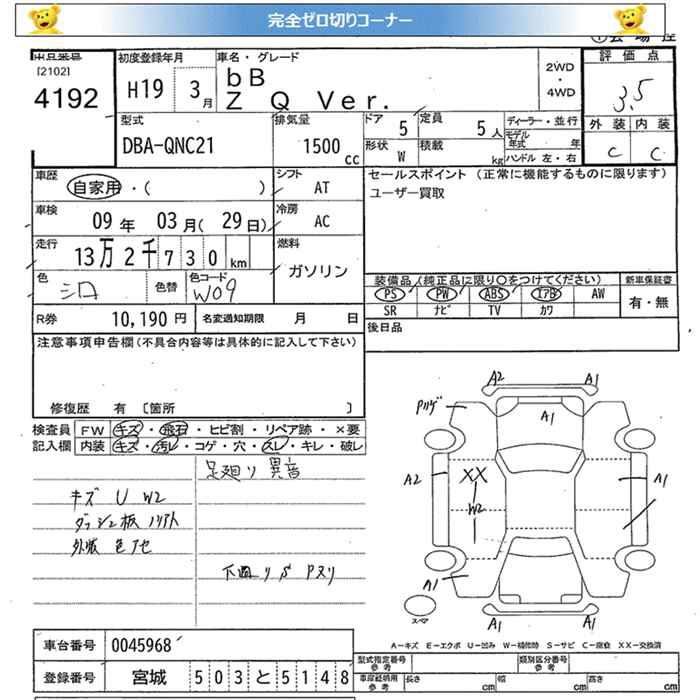 完全ゼロ切りコーナー
出品番号
[2102]
4192
初度登録年月
H19 3月
車名・グレード
bB
Z Q Ver.
2WD
・
4WD
評価点
3.5
外装 内装
C C
型式
DBA-QNC21
排気量
1500 cc
ドア 5
定員 5人
形状 W
積載 kg
ディーラー・並行
モデル年式 年
ハンドル 左・右
車歴
自家用・( )
シフト
AT
車検
09年 03月(29日)
冷房
AC
走行
13万2千730km
燃料
ガソリン
色
シロ
色替
色コード
W09
R券 10,190円
名変通知期限 月 日
セールスポイント (正常に機能するものに限ります)
ユーザー買取
装備品(純正品に限り○をつけてください)
新車保証書
PS PW ABS エアB AW
SR ナビ TV カワ
有・無
後日品
注意事項申告欄(不具合内容等は具体的に記入して下さい)
修復歴 有 [箇所 ]
検査員 FW キズ・飛石・ヒビ割・リペア跡・×要
記入欄 内装 キズ・汚レ・コゲ・穴・スレ・キレ・破レ
足廻り 異音
キズ U W2
ダッシュ板 ノリアト
外板 色アセ
下廻り S Pヌリ
A2 A1
A1
A2
XX
W2
A1
A1
A1 A1
スペア
A−キズ E−エクボ U−凹み W−補修跡 S−サビ C−腐食 XX−交換済
車台番号 0045968
登録番号 宮城 503と5148
型式指定番号 参考
類別区分番号 参考
車庫証明 参考
長さ cm
幅 cm
高さ cm